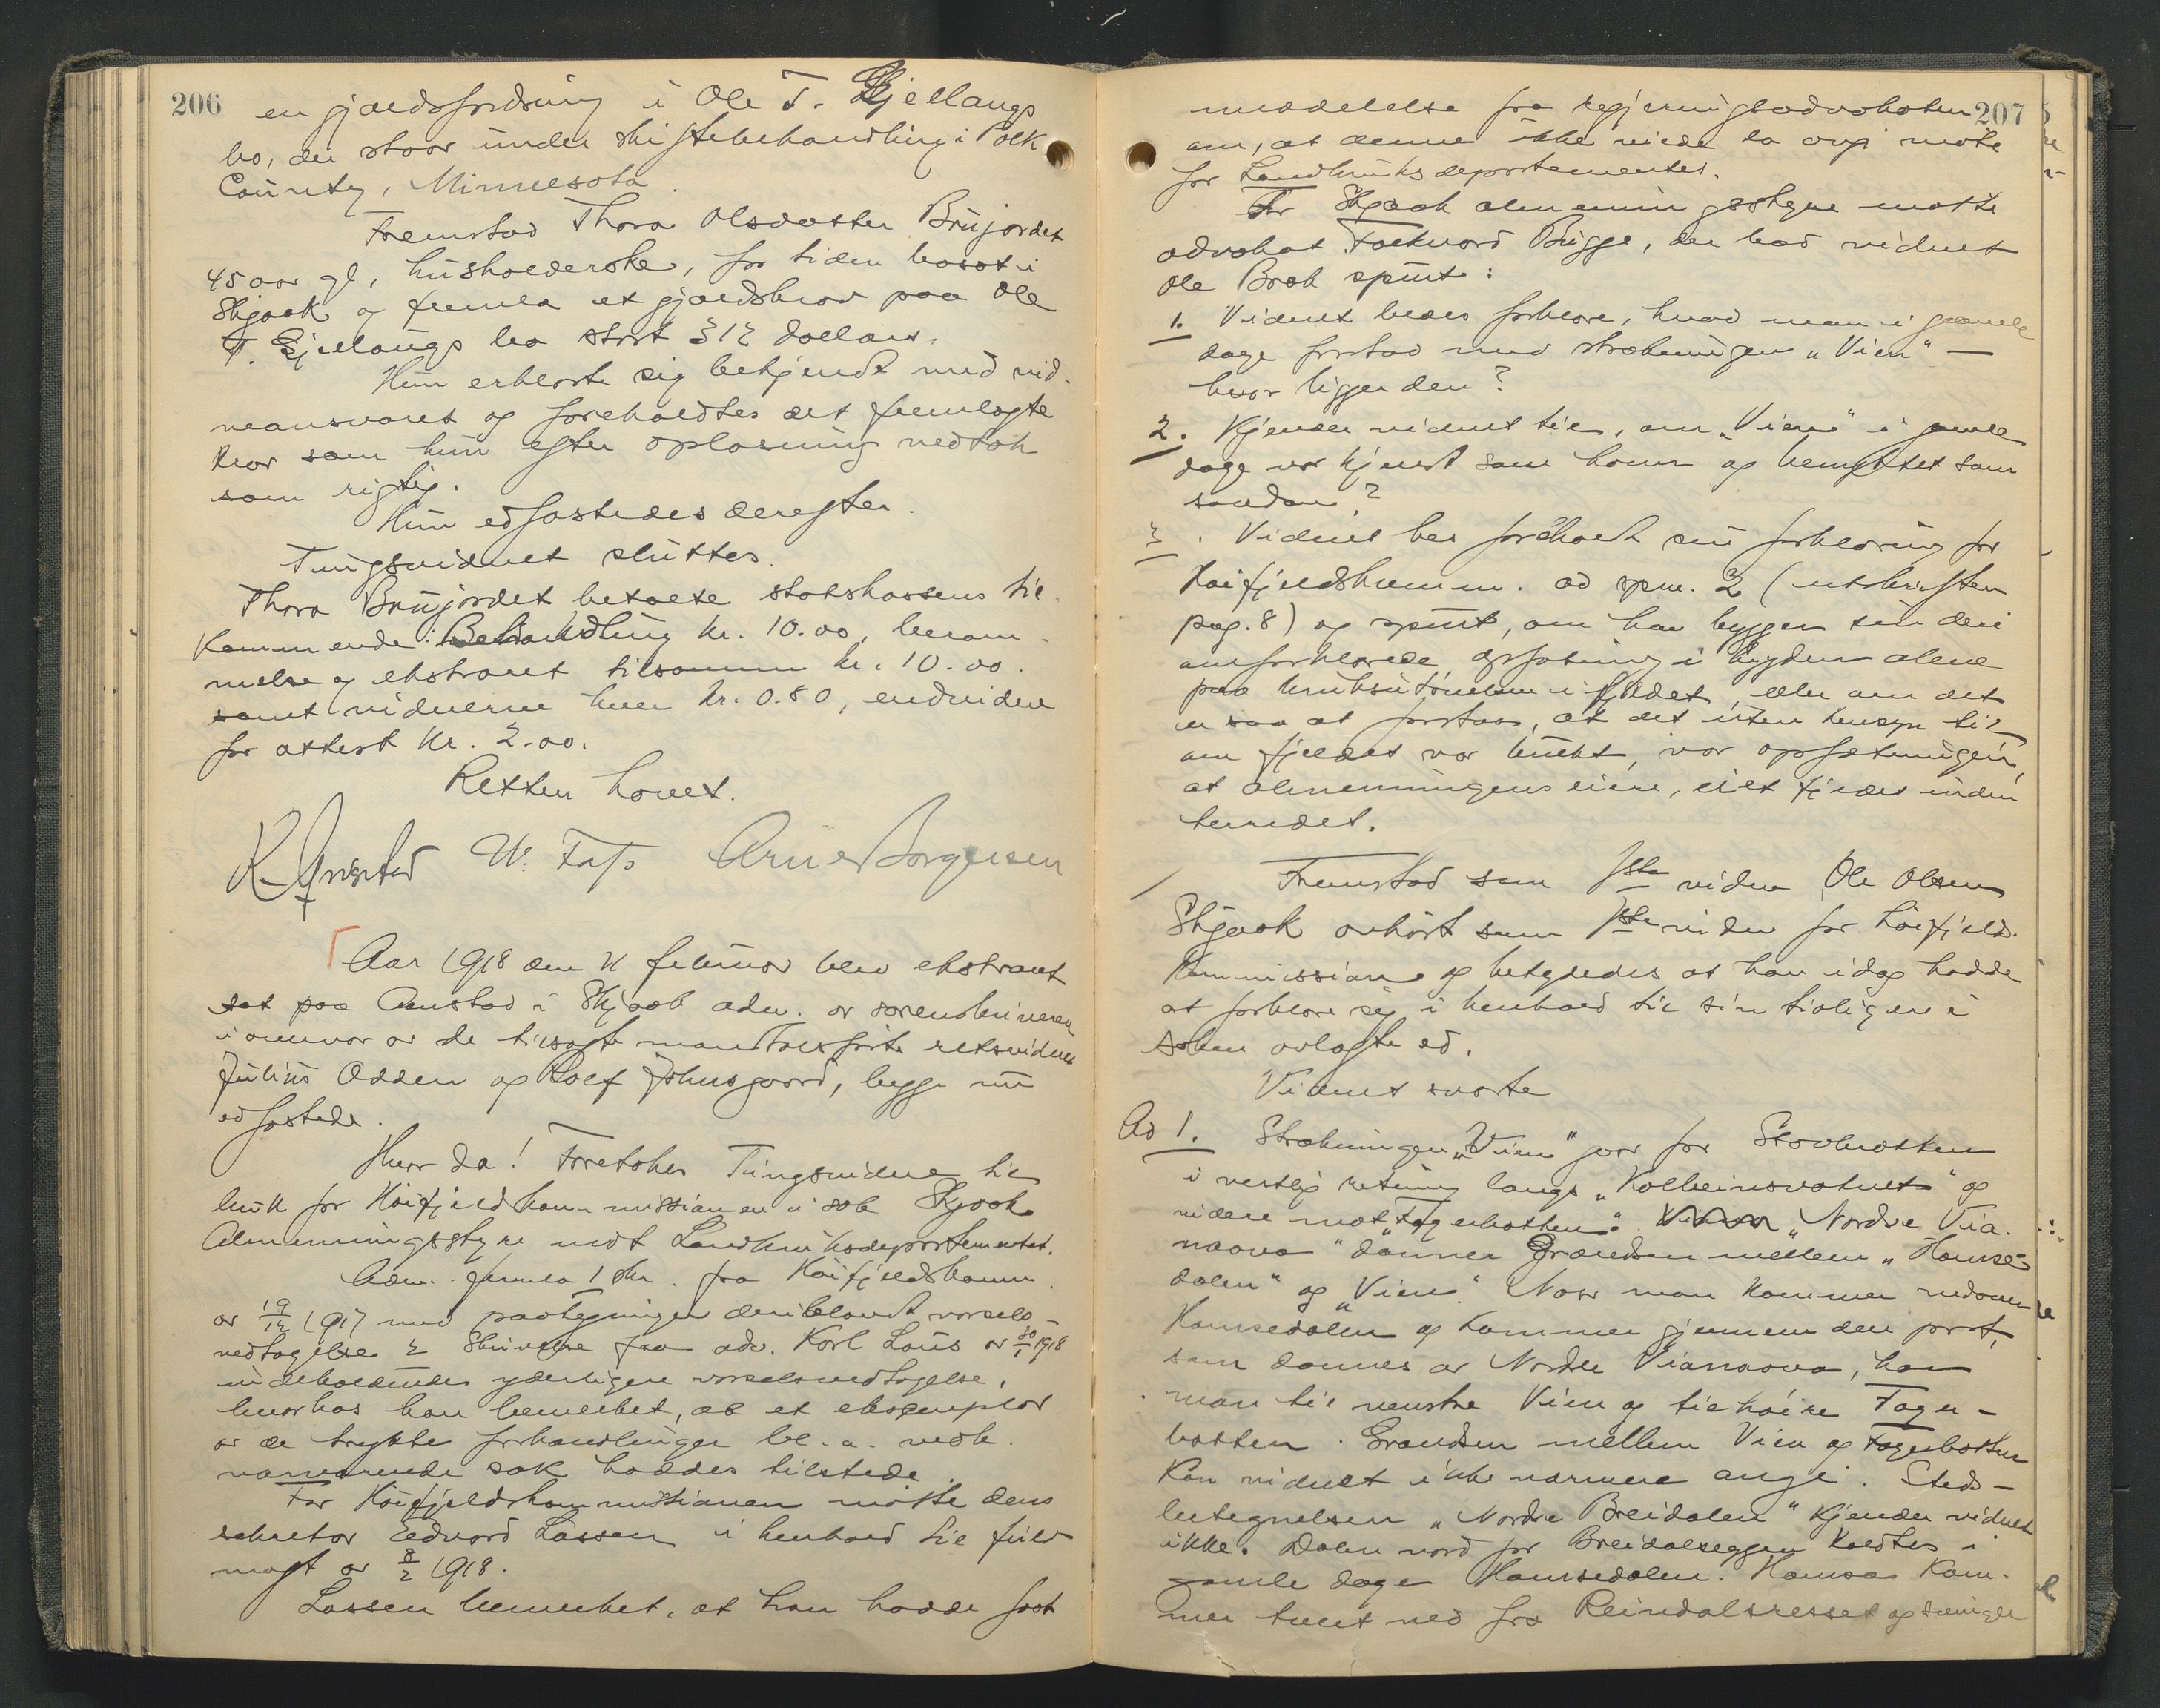 206
en gjældsfordring i Ole T. Gjellaugs
bo, der staar under skiftebehandling i Polk
County, Minnesota.
Fremstod Thora Olsdatter Brujordet
45 aar gl, husholderske, for tiden bosat i
Skjaak og fremla et gjældsbrev paa Ole
T. Gjellaugs bo stort 312 dollars.
Hun erklærte sig bekjendt med vid-
neansvaret og foreholdtes det fremlagte
krav som hun efter oplæsning vedtok
som rigtig.
Hun edfæstedes derefter.
Tingsvidnet sluttes.
Thora Brujordet betalte statskassens til-
kommende: Behandling kr. 10.00, beram-
melse og ekstraret tilsammen kr. 10.00.
samt vidnerne hver kr. 0.80, endvidere
for attest kr. 2.00.
Retten hævet.
W. Fass Arne Borgersen
Aar 1918 den 11 februar blev ekstraret
sat paa Aanstad i Skjaak adm. av sorenskriveren
i overvær av de tilsagte mandtalsførte retsvidner
Julius Odden og Rolf Johnsgaard, begge nu
edfæstede.
Hvor da! Foretokes Tingsvidne til
bruk for Høifjeldskommissionen i sak Skjaak
Almenningsstyre mot Landbruksdepartementet.
Adm. fremla 1 skr. fra Høifjeldskomm.
av 19/12 1917 med paategninger deriblandt varsels-
vedtagelse 2 Skrivelse fra adv. Karl Lous av 30/1 1918
indeholdende yderligere varselsvedtagelse,
hvorhos han bemerket, at et eksemplar
av de trykte forhandlinger bl. a. vedk.
nærværende sak haddes tilstede.
For Høifjeldskommissionen møtte dens
sekretær Edvard Lassen i henhold til fuld-
magt av 8/2 1918.
Lassen bemerket, at han hadde faat
207
meddelelse fra regjeringsadvokaten
om, at denne ikke vilde la avgi møte
for Landbruksdepartementet.
For Skjaak almenningsstyre møtte
advokat Folkvard Bugge, der bad vidnet
Ole Bræk spurt:
1. Vidnet bedes forklare, hvad man i gamle
dage forstod med strækningen "Vien" —
hvor ligger den?
2. Kjender vidnet til, om "Vien" i gamle
dage var kjendt som havn og benyttet som
saadan?
3. Vidnet bes foreholdt sin forklaring for
Høifjeldskomm. ad spm. 2 (utskriften
pag. 8) og spurt, om han bygger sin deri
omforklarede opfatning i bygden alene
paa bruksutøvelsen i fjeldet, eller om det
er saa at forstaa, at det uten hensyn til
om fjeldet var brukt, var opfatningen,
at almenningens eiere, eiet fjeldet inden
herredet.
Fremstod som 1ste vidne Ole Olsen
Skjaak avhørt som 1ste vidne for høifjelds-
kommissionen og betydedes at han idag hadde
at forklare sig i henhold til sin tidligere i
saken avlagte ed.
Vidnet svarte
Ad 1. Strækningen "Vien" gaar for Stavbrotten
i vestlig retning langs "Kolbeinsvatnet" og
videre mot "Fagerbotten". "Nordre Via-
naava" danner Grændsen mellem "Hamse-
dalen" og "Vien". Naar man kommer nedover
Hamsedalen og kommer gjennem den port,
som dannes av Nordre Vianaava, har
man til venstre Vien og til høire Fager-
botten. Grændsen mellem Vien og Fagerbotten
kan vidnet ikke nærmere angi. Steds-
betegnelsen "Nordre Breidalen" kjender vidnet
ikke. Dalen nord for Breidalseggen kaldtes i
gamle dage Hamsedalen. Hamsa kom-
mer tvert ned fra Reindalsresset og